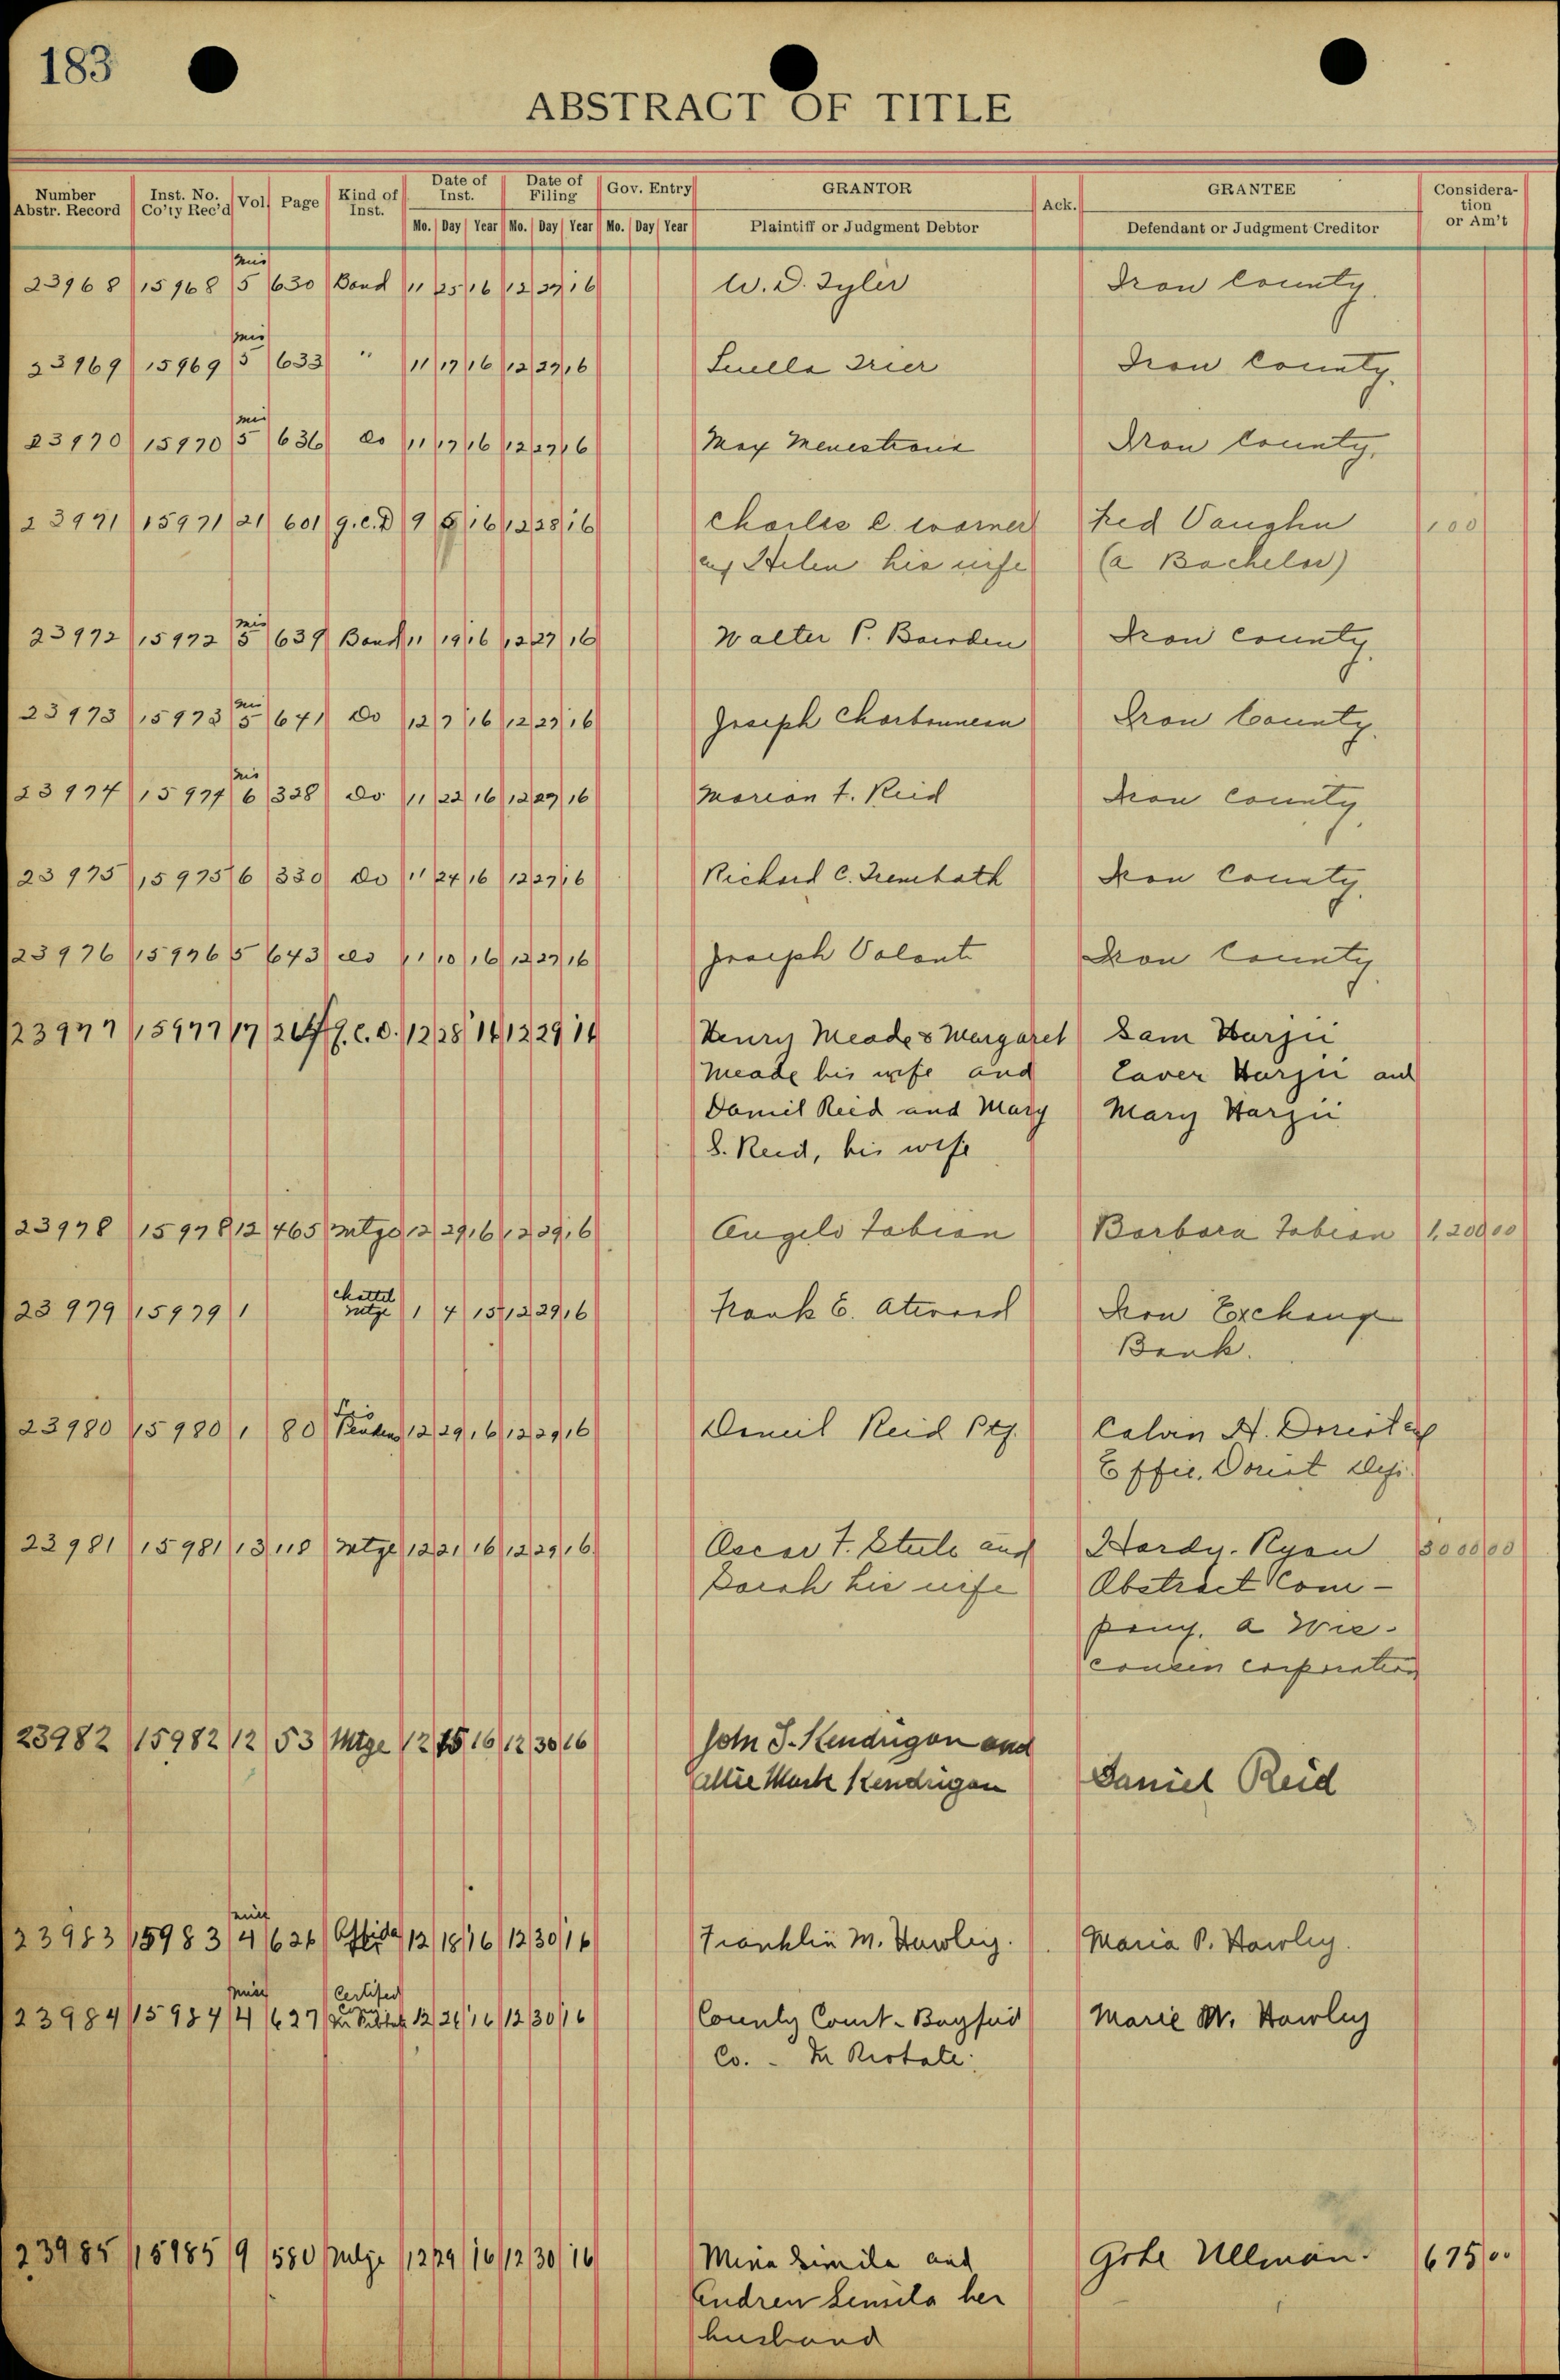 183
ABSTRACT OF TITLE
Number Abstr. Record Inst. No. Co'ty Rec'd Vol. Page Kind of Inst. Date of Inst. Date of Filing Gov. Entry GRANTOR Ack. GRANTEE Consideration or Am't
Mo. Day Year Mo. Day Year Mo. Day Year Plaintiff or Judgment Debtor Defendant or Judgment Creditor
Mis
23968 15968 5 630 Bond 11 25 16 12 27 16 W. D. Tyler Iron County.
Mis
23969 15969 5 633 " 11 17 16 12 27 16 Luella Trier Iron County.
Mis
23970 15970 5 636 do 11 17 16 12 27 16 Max Iron County.
23971 15971 21 601 Q.C.D 9 16 12 28 16 Charles C. Warner Fred Vaughn 100
and Helen his wife (a Bachelor)
Mis
23972 15972 5 639 Bond 11 19 16 12 27 16 Walter P. Iron County.
Mis
23973 15973 5 641 Do 12 7 16 12 27 16 Joseph Charbonneau Iron County.
Mis
23974 15974 6 328 Do 11 22 16 12 27 16 Marion F. Reid Iron County.
23975 15975 6 330 Do 11 24 16 12 27 16 Richard C. Trembath Iron County.
23976 15976 5 643 do 11 10 16 12 27 16 Joseph Valont Iron County.
23977 15977 17 Q.C.D. 12 28 16 12 29 16 Henry Meade & Margaret Sam Harju
Meade his wife and Harju and
Daniel Reid and Mary Mary Harju
S. Reid, his wife
23978 15978 12 465 Mtge 12 29 16 12 29 16 Angelo Fabian Barbara Fabian 1,200 00
Chattel
23979 15979 1 Mtge 1 4 15 12 29 16 Frank E. Atwood Iron Exchange
Bank.
Lis
23980 15980 1 80 Pendens 12 29 16 12 29 16 Daniel Reid Ptf. Calvin H.
Effie
23981 15981 13 118 Mtge 12 21 16 12 29 16 Oscar F. Steele and Hardy-Ryan 3000 00
Sarah his wife Abstract Com-
pany, a Wis-
consin corporation
23982 15982 12 53 Mtge 12 15 16 12 30 16 John J. Kendrigan and
Allie Mark Kendrigan Daniel Reid
Misc
23983 15983 4 626 12 18 16 12 30 16 Franklin M. Hawley. Maria P. Hawley.
Misc Certified
Copy
23984 15984 4 627 12 26 16 12 30 16 County Court - Bayfield Marie M. Hawley
Co. - In Probate.
23985 15985 9 580 Mtge 12 29 16 12 30 16 Mina and Gote Ullman. 675 00
Andrew her
husband